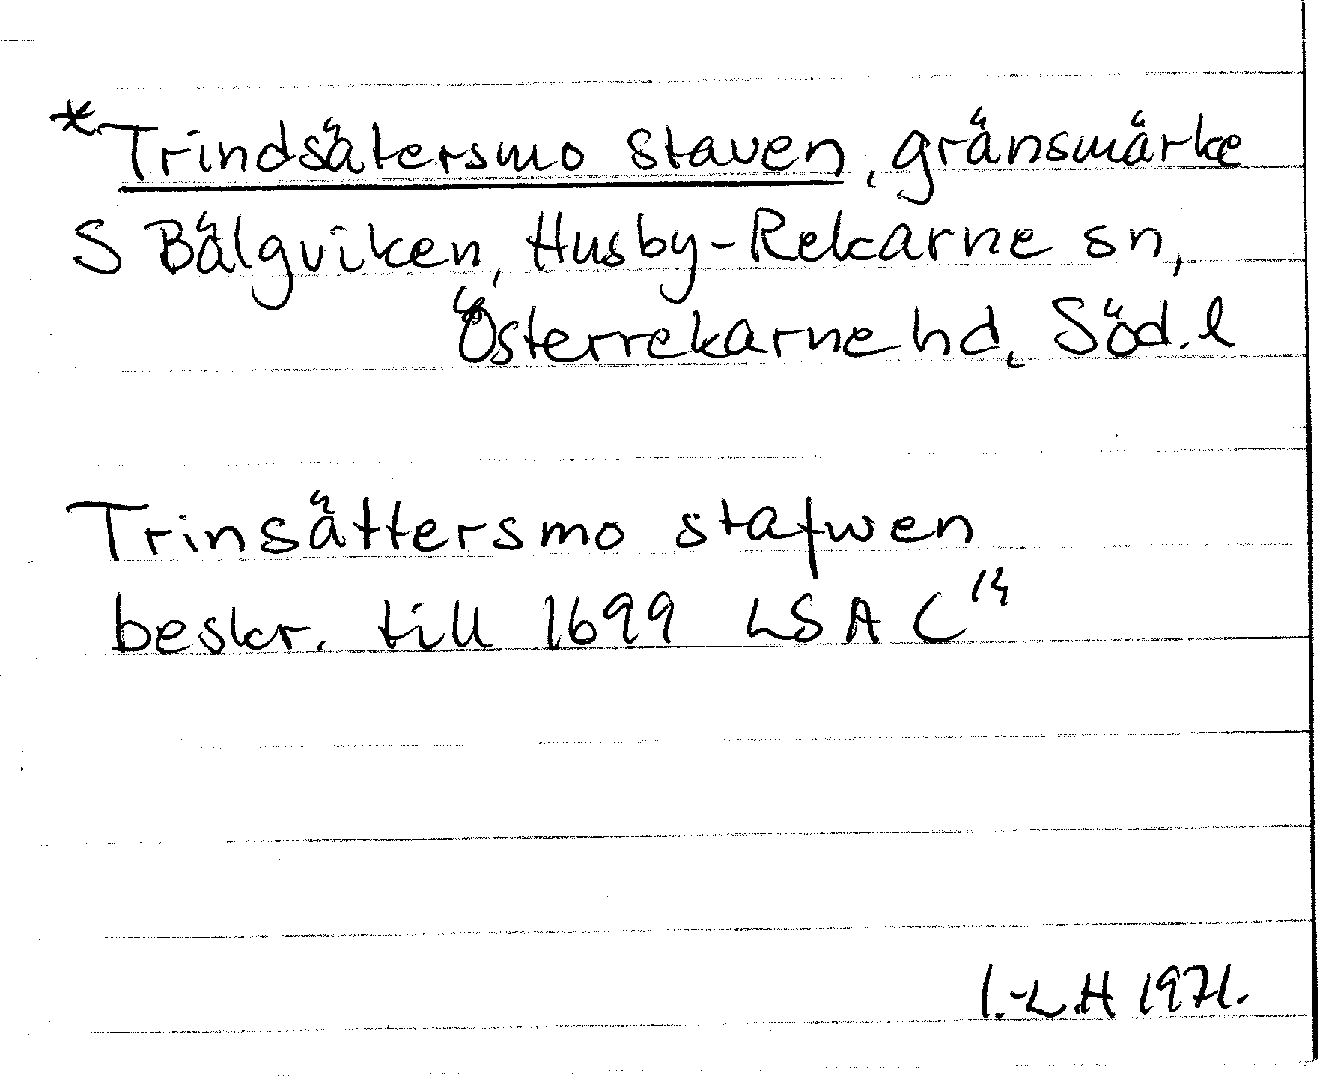 *Trindsätersmo staven, gränsmärke
S Bälgviken, Husby-Rekarne sn,
Österrekarne hd, Söd. l
Trinsättersmo stafwen
beskr. till 1699 LSA C14
I.-L.H 1971.